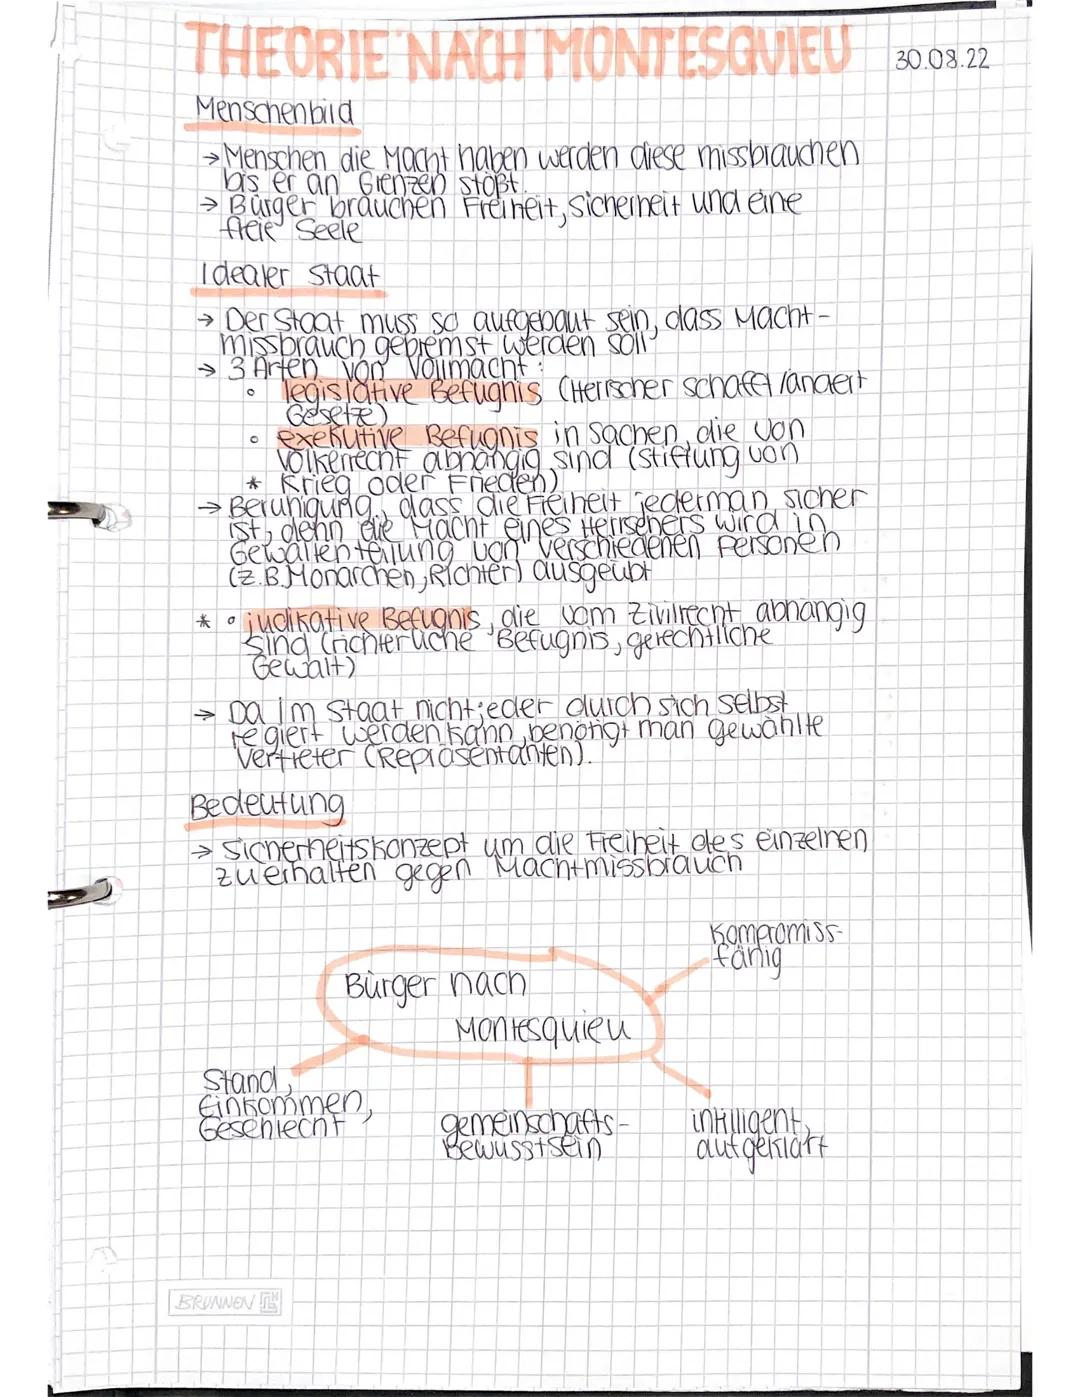 THEORIE NACH MONTESQUIEU
30.08.22
Menschenbild
→ Menschen die Macht haben werden diese missbrauchen
bis er an Grenzen stößt.
→ Bürger brauchen Freiheit, Sicherheit und eine
freie Seele
Idealer Staat
→ Der Staat muss so aufgebaut sein, dass Macht-
missbrauch gebremst werden soll
→ 3 Arten von Vollmacht:
◦ legislative Befugnis (Herrscher schafft/ändert
Gesetze)
◦ exekutive Befugnis in Sachen, die von
Völkerrecht abhängig sind (Stiftung von
* Krieg oder Frieden)
→ Beruhigung, dass die Freiheit jederman sicher
ist, denn die Macht eines Herrschers wird in
Gewaltenteilung von verschiedenen Personen
(z.B. Monarchen, Richter) ausgeübt
* ◦ judikative Befugnis, die vom Zivilrecht abhängig
sind (richterliche Befugnis, gerechtliche
Gewalt)
→ Da im Staat nicht jeder durch sich selbst
regiert werden kann, benötigt man gewählte
Vertreter (Repräsentanten).
Bedeutung
→ Sicherheitskonzept um die Freiheit des einzelnen
zu erhalten gegen Machtmissbrauch
Kompromiss-
fähig
Bürger nach
Montesquieu
Stand,
Einkommen,
Geschlecht
gemeinschafts-
Bewusstsein
intilligent,
aufgeklärt
BRUNNEN